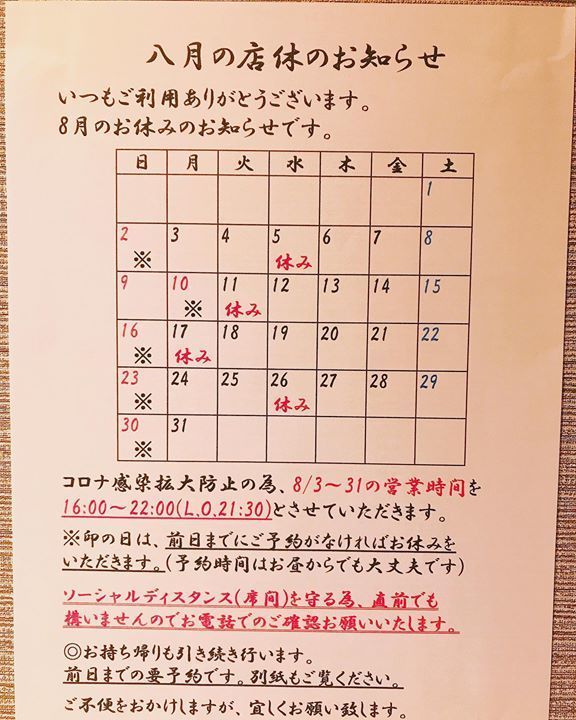 八月の店休のお知らせ
いつもご利用ありがとうございます。
8月のお休みのお知らせです。
日 月 火 水 木 金 土
1
2 3 4 5 6 7 8
※ 休み
9 10 11 12 13 14 15
※ 休み
16 17 18 19 20 21 22
※ 休み
23 24 25 26 27 28 29
※ 休み
30 31
※
コロナ感染拡大防止の為、8/3～31の営業時間を
16:00～22:00(L,O,21:30)とさせていただきます。
※印の日は、前日までにご予約がなければお休みを
いただきます。(予約時間はお昼からでも大丈夫です)
ソーシャルディスタンス(席間)を守る為、直前でも
構いませんのでお電話でのご確認お願いいたします。
◎お持ち帰りも引き続き行います。
前日までの要予約です。別紙もご覧ください。
ご不便をおかけしますが、宜しくお願い致します。